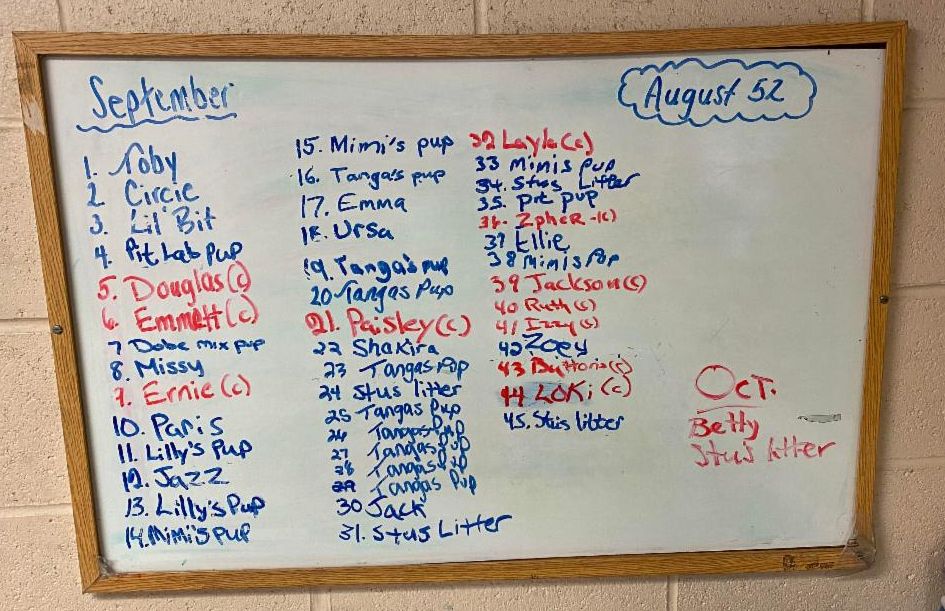 September
1. Toby
2 Circie
3. Lil' Bit
4. Pit Lab pup
5. Douglas (c)
6. Emmett (c)
7 Dobe mix pup
8. Missy
9. Ernie (c)
10. Paris
11. Lilly's Pup
12. Jazz
13. Lilly's Pup
14. Mimi's pup
15. Mimi's pup
16. Tanga's pup
17. Emma
18. Ursa
19. Tanga's pup
20 Tangas Pup
21. Paisley (c)
22 Shakira
23 Tangas Pup
24 Stus litter
25 Tangas Pup
26 Tangas Pup
27 Tangas Pup
28 Tangas Pup
29 Tangas Pup
30 Jack
31. Stus Litter
32 Layla (c)
33 Mimis Pup
34. Stus Litter
35. Pit pup
36. ZpheR - (c)
37 Ellie
38 Mimis Pup
39 Jackson (c)
40 Ruth (c)
41 Izzy (c)
42 Zoey
43 (c)
44 LOKi (c)
45. Stus litter
August 52
Oct.
Betty
Stus litter